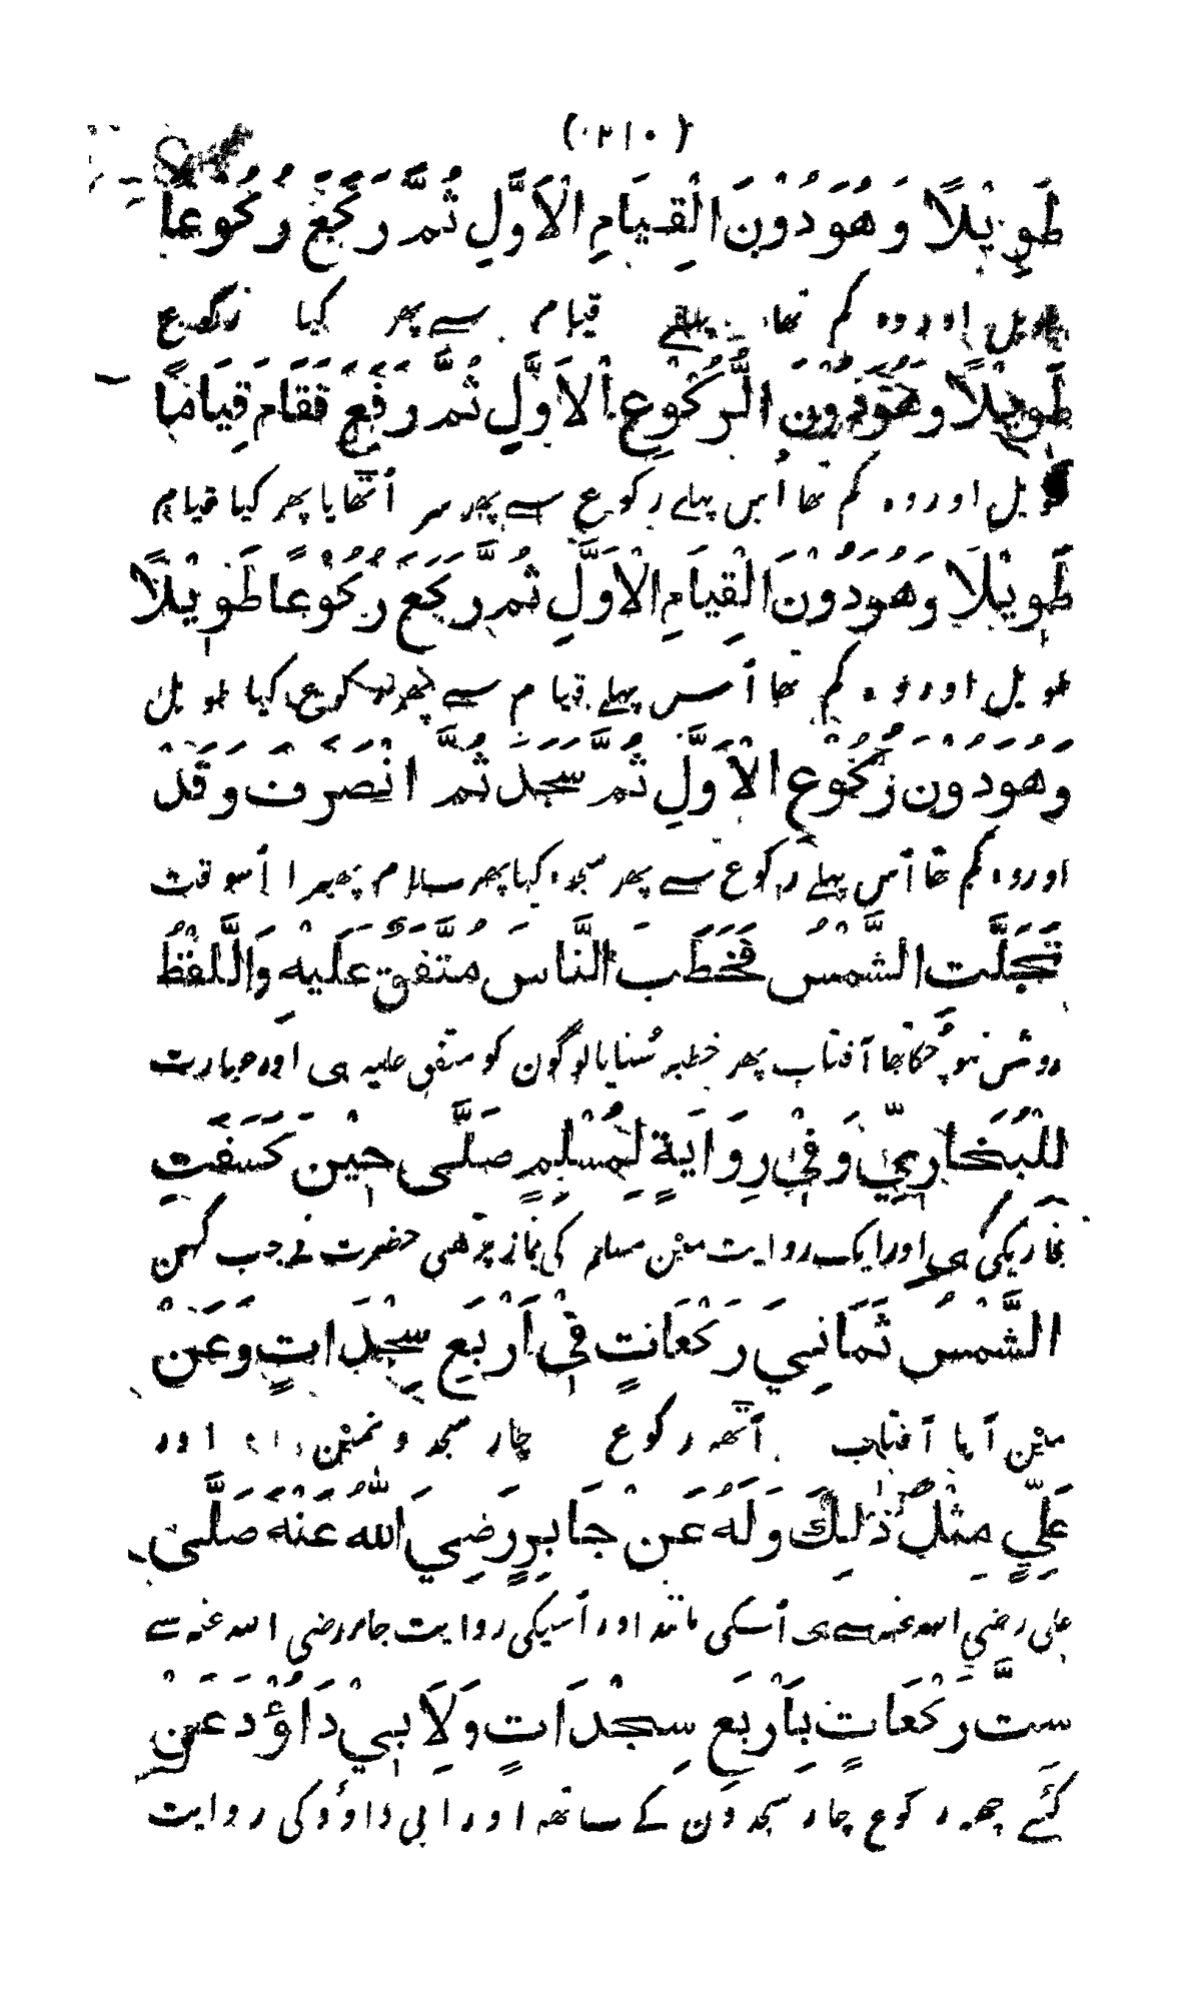 (۲۱۰)
طَوِيْلًا وَهُوَ دُوْنَ الْقِيَامِ الْاَوَّلِ ثُمَّ رَكَعَ رُكُوْعًا
طویل اور وہ کم تھا پہلے قیام سے پھر کیا رکوع
طَوِيْلًا وَهُوَ دُوْنَ الرُّكُوْعِ الْاَوَّلِ ثُمَّ رَفَعَ فَقَامَ قِيَامًا
طویل اور وہ کم تھا اُس پہلے رکوع سے پھر سر اُٹھایا پھر کیا قیام
طَوِيْلًا وَهُوَ دُوْنَ الْقِيَامِ الْاَوَّلِ ثُمَّ رَكَعَ رُكُوْعًا طَوِيْلًا
طویل اور وہ کم تھا اُس پہلے قیام سے پھر رکوع کیا طویل
وَهُوَ دُوْنَ رُكُوْعِ الْاَوَّلِ ثُمَّ سَجَدَ ثُمَّ انْصَرَفَ وَقَدْ
اور وہ کم تھا اُس پہلے رکوع سے پھر سجدہ کیا پھر سلام پھیرا اُسوقت
تَجَلَّتِ الشَّمْسُ فَخَطَبَ النَّاسَ مُتَّفَقٌ عَلَيْهِ وَاللَّفْظُ
روشن ہو چکا تھا آفتاب پھر خطبہ سُنایا لوگون کو متفق علیہ ہی اور عبارت
لِلْبُخَارِيِّ وَفِيْ رِوَايَةٍ لِمُسْلِمٍ صَلَّى حِيْنَ كَسَفَتِ
بخاریکی ہی اور ایک روایت مین مسلم کی نماز پڑھی حضرت نے جب گہن
الشَّمْسُ ثَمَانِيَ رَكْعَاتٍ فِيْ اَرْبَعِ سَجْدَاتٍ وَعَنْ
مین آیا آفتاب آٹھ رکوع چار سجدونمین اور
عَلِيٍّ مِثْلُ ذٰلِكَ وَلَهُ عَنْ جَابِرٍ رَضِيَ اللّٰهُ عَنْهُ صَلَّى
علی رضی اللہ عنہ سے ہی اُسکی مانند اور اُسیکی روایت جابر رضی اللہ عنہ سے
سِتَّ رَكْعَاتٍ بِاَرْبَعِ سِجْدَاتٍ وَلِاَبِيْ دَاوُٗدَ عَنْ
کئے چھہ رکوع چار سجدون کے ساتھہ اور ابی داؤد کی روایت